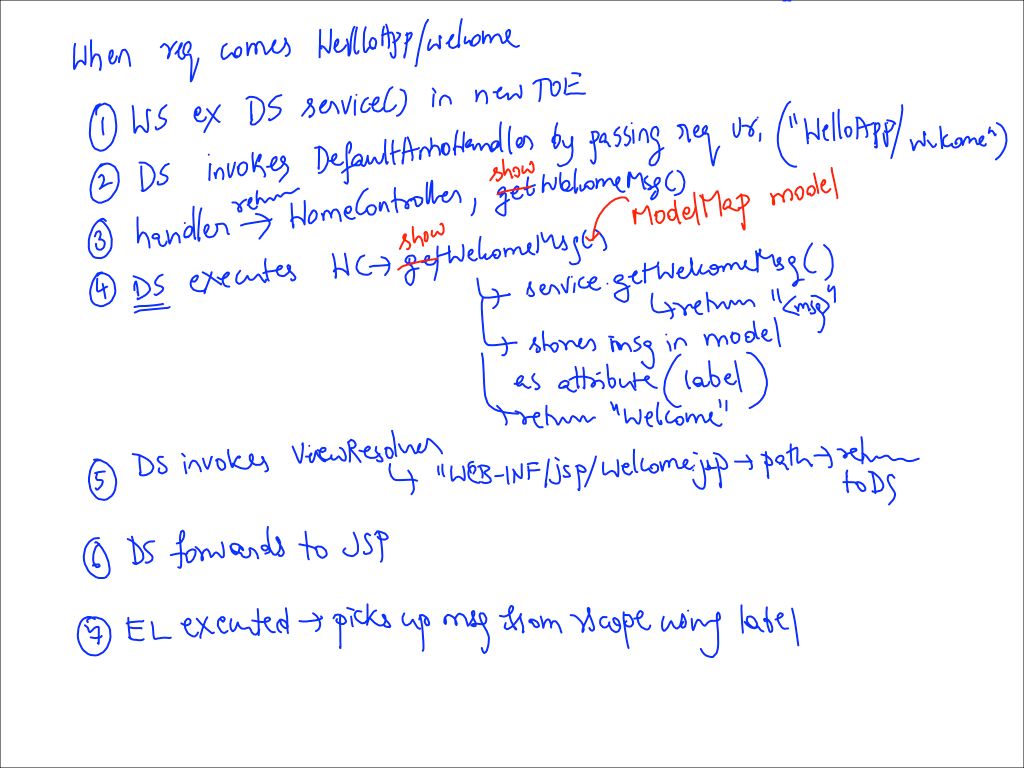 When req comes HelloApp/welcome
① WS ex DS service() in new TOE
② DS invokes DefaultAnnoHandler by passing req ur, ("HelloApp/welcome")
③ handler return → HomeController, show getWelcomeMsg()
ModelMap model
④ DS executes HC → show getWelcomeMsg()
↳ service.getWelcomeMsg()
↳ return "<msg>"
↳ stores msg in model
as attribute (label)
↳ return "Welcome"
⑤ DS invokes ViewResolver
↳ "WEB-INF/jsp/Welcome.jsp → path → return
to DS
⑥ DS forwards to JSP
⑦ EL executed → picks up msg from scope using label